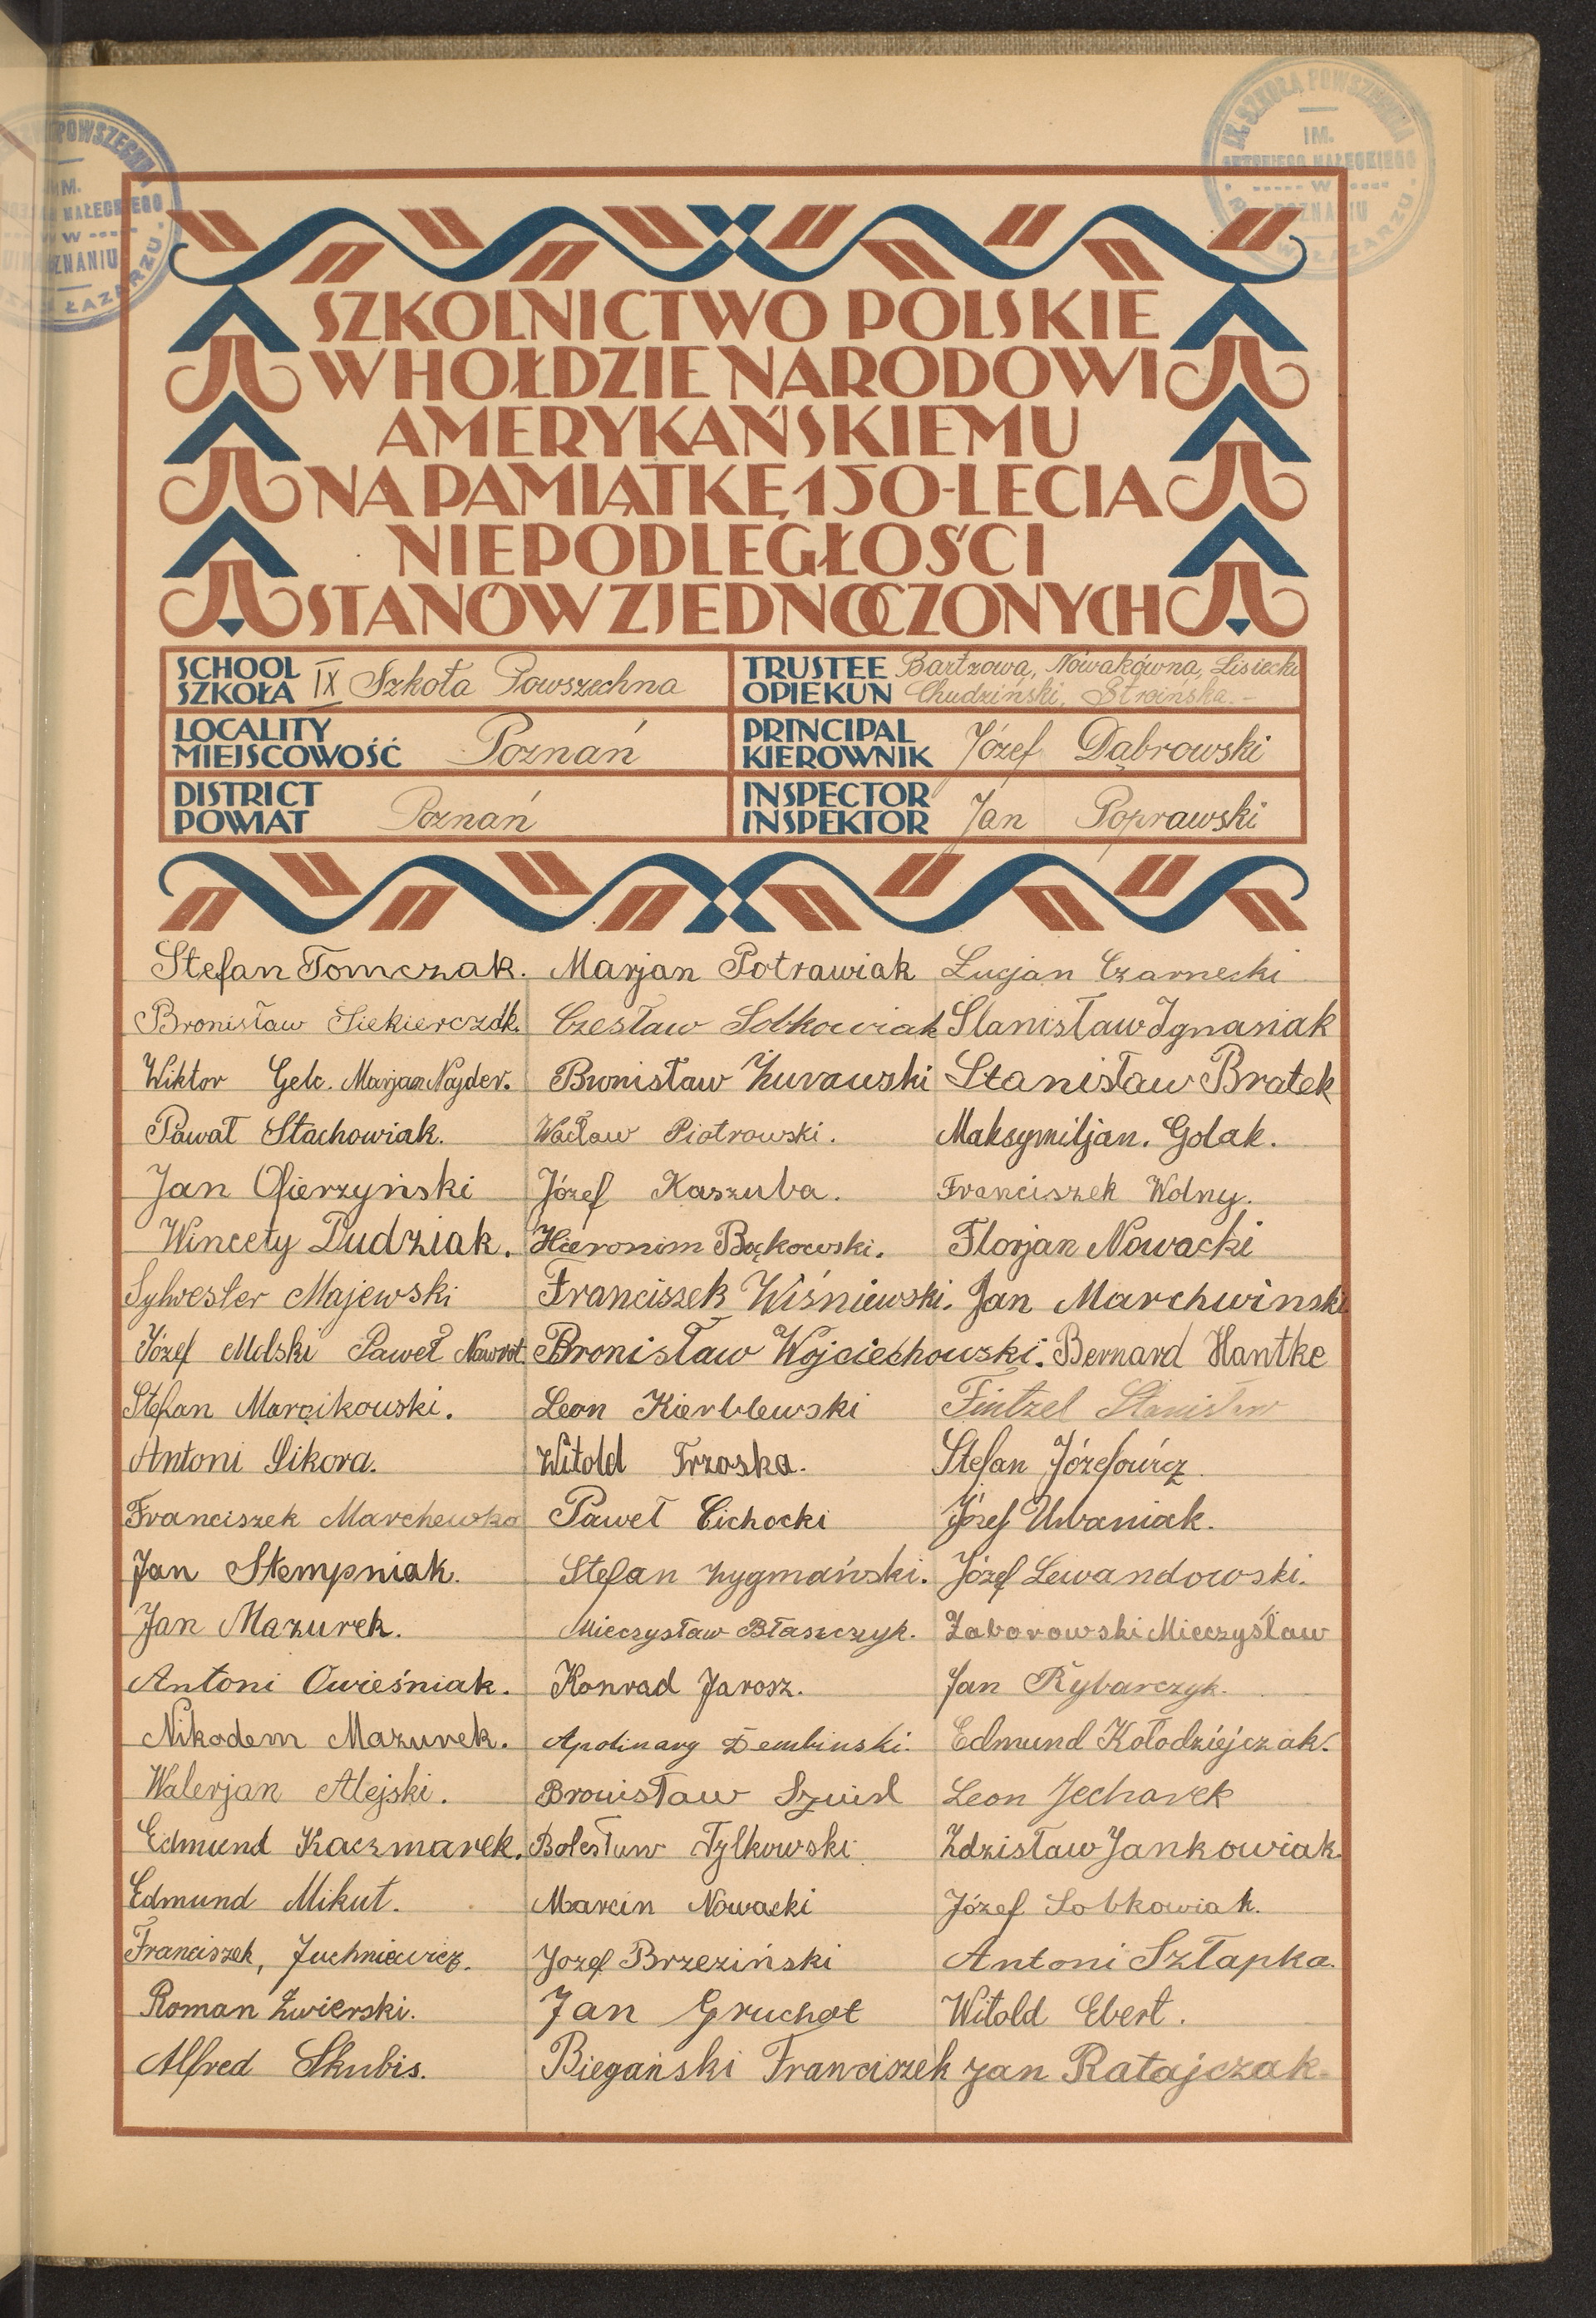 IX. SZKOŁA POWSZECHNA
IM.
ANTONIEGO MAŁECKIEGO
W
POZNANIU
ŁAZARZU
SZKOLNICTWO POLSKIE
W HOŁDZIE NARODOWI
AMERYKAŃSKIEMU
NA PAMIĄTKĘ 150-LECIA
NIEPODLEGŁOŚCI
STANÓW ZJEDNOCZONYCH
SCHOOL SZKOŁA IX Szkoła Powszechna
TRUSTEE OPIEKUN Bartzowa, Nowakówna, Lisiecki
Chudziński, Stroińska.-
LOCALITY MIEJSCOWOŚĆ Poznań
PRINCIPAL KIEROWNIK Józef Dąbrowski
DISTRICT POWIAT Poznań
INSPECTOR INSPEKTOR Jan Poprawski
Stefan Tomczak. Marjan Potrawiak Lucjan Czarnecki
Bronisław Siekierczak. Czesław Sobkowiak Stanisław Ignasiak
Wiktor Gelc. Marjan Najder. Bronisław Żurawski Stanisław Bratek
Pawał Stachowiak. Wacław Piotrowski. Maksymiljan. Golak.
Jan Ofierzyński Józef Kaszuba. Franciszek Wolny.
Wincety Dudziak. Hieronim Bąkowski. Florjan Nowacki
Sylwester Majewski Franciszek Wiśniewski. Jan Marchwinski
Józef Molski Paweł Nawrot. Bronisław Wojciechowski. Bernard Hantke
Stefan Marcikowski. Leon Kierblewski Fintzel Stanisław
Antoni Sikora. Witold Trzaska. Stefan Józefowicz
Franciszek Marchewka Paweł Cichocki Józef Urbaniak.
Jan Stempniak. Stefan Zygmański. Józef Lewandowski.
Jan Mazurek. Mieczysław Błaszczyk. Zaborowski Mieczysław
Antoni Owieśniak. Konrad Jarosz. Jan Rybarczyk.
Nikodem Mazurek. Apolinary Dembinski. Edmund Kołodziejczak.
Walerjan Alejski. Bronisław Leon Jechorek
Edmund Kaczmarek. Bolesław Tylkowski Zdzisław Jankowiak.
Edmund Mikut. Marcin Nowacki Józef Sobkowiak.
Franciszek, Juchniewicz. Jozef Brzeziński Antoni Szłapka.
Roman Żwierski. Jan Gruchot Witold Ebert.
Alfred Skubis. Biegański Franciszek Jan Ratajczak.